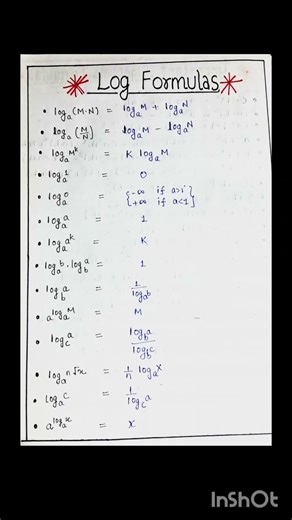 Log Formulas
• logₐ(M·N) = logₐM + logₐN
• logₐ(M/N) = logₐM − logₐN
• logₐMᵏ = K logₐM
• logₐ1 = 0
• logₐ0 = {-∞ if a>1 / +∞ if a<1}
• logₐa = 1
• logₐaᵏ = K
• logₐb · log_b a = 1
• log_b a = 1/logₐb
• a^(logₐM) = M
• log_c a = log_b a / log_b c
• logₐ ⁿ√x = 1/n logₐx
• logₐc = 1/log_c a
• a^(logₐx) = x
InShOt